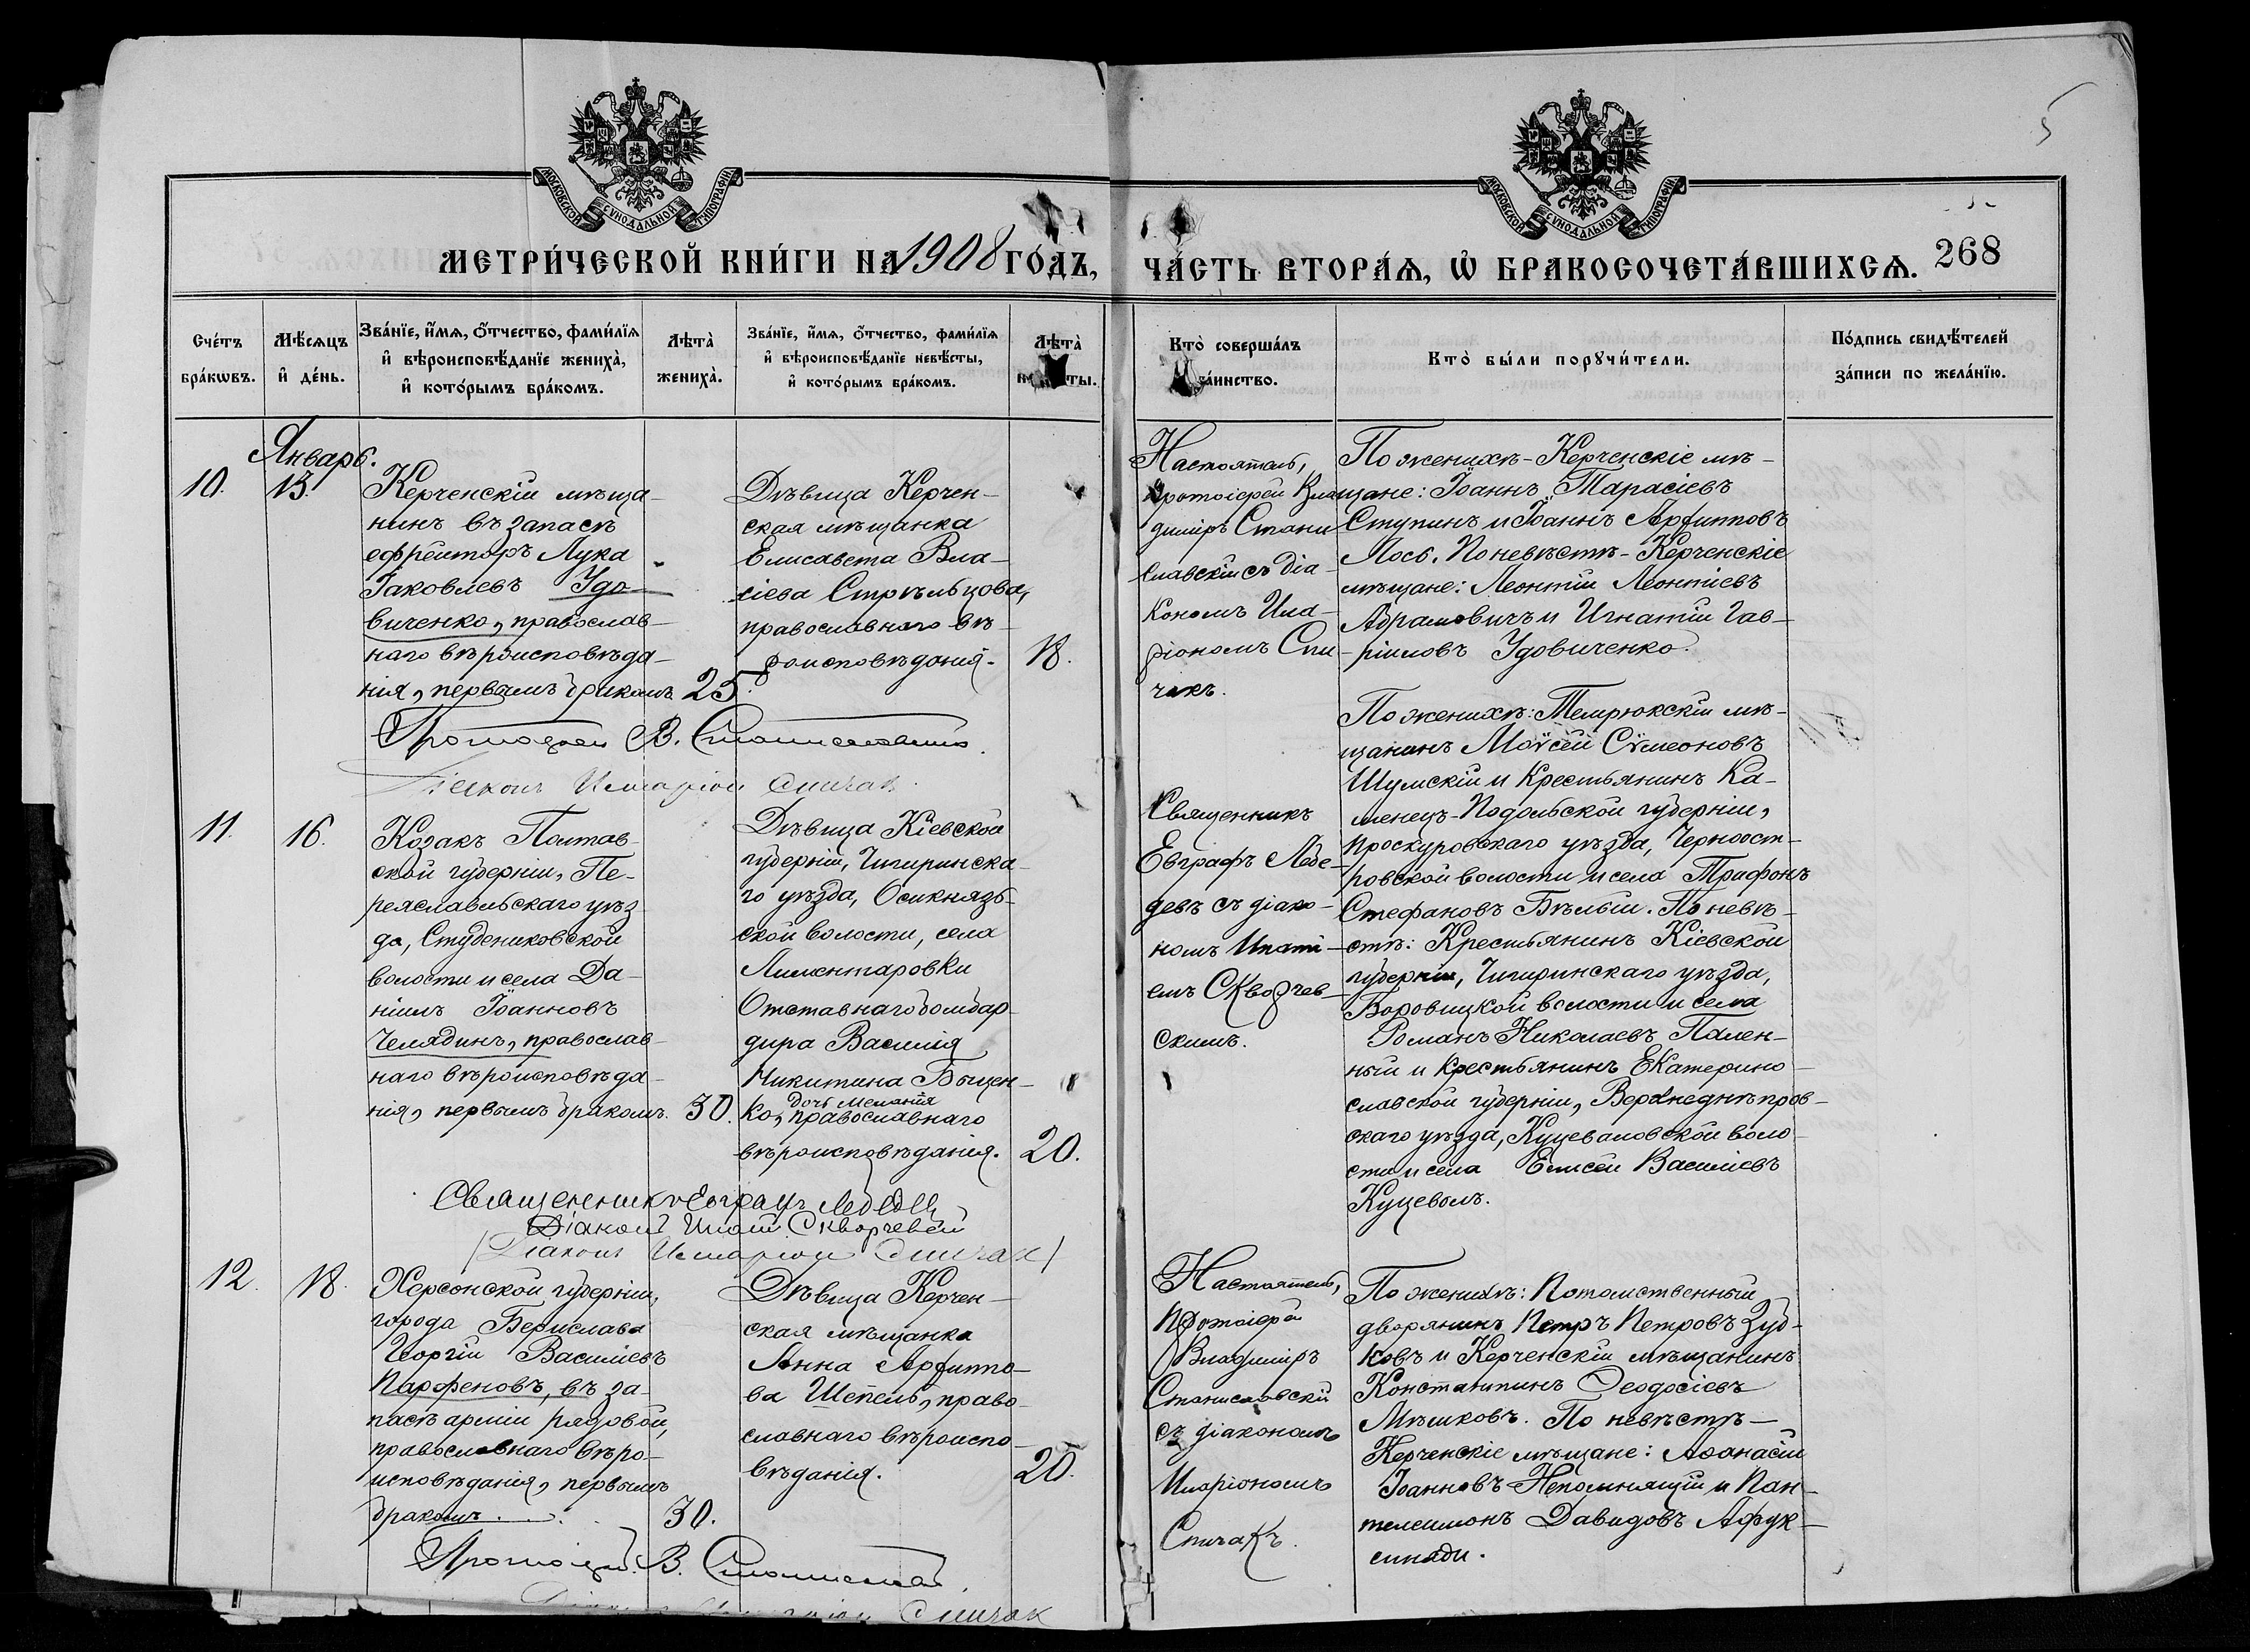 5
МОСКОВСКОЙ СѴНОДАЛЬНОЙ ТИПОГРАФІИ
МОСКОВСКОЙ СѴНОДАЛЬНОЙ ТИПОГРАФІИ
МЕТРИ́ЧЕСКОЙ КНИ́ГИ НА 1908 ГО́ДЪ,
ЧА́СТЬ ВТОРА́Ѧ, Ѽ БРАКОСОЧЕТА́ВШИХСѦ. 268
Сче́тъ
бра́кѡвъ.
Мѣ́сѧцъ
и҆ де́нь.
Зва́нїе, и҆́мѧ, ѻ҆́тчество, фами́лїѧ
и҆ вѣроисповѣ́данїе жениха̀,
и҆ кото́рымъ бра́комъ.
Лѣта̀
жениха̀.
Зва́нїе, и҆́мѧ, ѻ҆́тчество, фами́лїѧ
и҆ вѣроисповѣ́данїе невѣ́сты,
и҆ кото́рымъ бра́комъ.
Лѣта̀
ты.
Кто̀ соверша́лъ
та́инство.
Кто̀ бы́ли порꙋчи́тели.
По́дпись свидѣ́телей
за́писи по жела́нїю.
Январь.
10.
13.
Керченскій мѣща-
нинъ въ запасѣ
ефрейторъ Лука
Іаковлевъ Удо-
виченко, православ-
наго вѣроисповѣда-
нія, первымъ бракомъ
25.
Дѣвица Керчен-
ская мѣщанка
Елисавета Вла-
сіева Стрѣльцова,
православнаго вѣ-
роисповѣданія.
18.
Настоятель,
протоіерей Вла-
димиръ Стани-
славскій съ діа-
кономъ Ила-
ріономъ Спи-
чакъ.
По женихѣ - Керченскіе мѣ-
щане: Іоаннъ Тарасіевъ
Ступинъ и Іоаннъ Архипповъ
Лось. По невѣстѣ - Керченскіе
мѣщане: Леонтій Леонтіевъ
Абрамовичъ и Игнатій Гав-
ріиловъ Удовиченко.
Протоіерей В. Станиславскій.
Діаконъ Иларіонъ Спичак
11.
16.
Козакъ Полтав-
ской губерніи, Пе-
реяславльскаго уѣз-
да, Студениковской
волости и села Да-
ніилъ Іоанновъ
Челядинъ, православ-
наго вѣроисповѣда-
нія, первымъ бракомъ.
30.
Дѣвица Кіевской
губерніи, Чигиринска-
го уѣзда, Осикнязь-
ской волости, села
Лиментаровки
Отставнаго бомбар-
дира Василія
Никитина Быцен-
дочь Меланія
ко, православнаго
вѣроисповѣданія.
20.
Священникъ
Евграфъ Лебе-
девъ съ діако-
номъ Ипаті-
емъ Скворчев-
скимъ.
По женихѣ: Темрюкскій мѣ-
щанинъ Моѵсей Сѵмеоновъ
Шумскій и Крестьянинъ Ка-
менецъ-Подольской губерніи,
Проскуровскаго уѣзда, Черноост-
ровской волости и села Трифонъ
Стефановъ Бѣлый. По невѣ-
стѣ: Крестьянинъ Кіевской
губерніи, Чигиринскаго уѣзда,
Боровицкой волости и села
Романъ Николаевъ Пален-
ный и Крестьянинъ Екатерино-
славской губерніи, Верхнеднѣпров-
скаго уѣзда, Куцеваловской воло-
сти и села Елисей Василіевъ
Куцеволъ.
Священникъ Евграфъ Лебедевъ
Діаконъ Ипатій Скворчевскій
Діаконъ Иларіонъ Спичак
12.
18.
Херсонской губерніи,
города Берислава
Георгій Василіевъ
Парфеновъ, въ за-
пасѣ арміи рядовой,
православнаго вѣро-
исповѣданія, первымъ
бракомъ.
30.
Дѣвица Керчен-
ская мѣщанка
Анна Архиппо-
ва Шепель, право-
славнаго вѣроиспо-
вѣданія.
20.
Настоятель,
протоіерей
Владимиръ
Станиславскій
съ діакономъ
Иларіономъ
Спичакъ.
По женихѣ: Потомственный
дворянинъ Петръ Петровъ Зуб-
ковъ и Керченскій мѣщанинъ
Константинъ Ѳеодосіевъ
Мѣшковъ. По невѣстѣ -
Керченскіе мѣщане: Аѳанасій
Іоанновъ Непомнящій и Пан-
телеимонъ Давидовъ Афук-
синади.
Протоіерей В. Станиславскій.
Діаконъ Иларіонъ Спичак